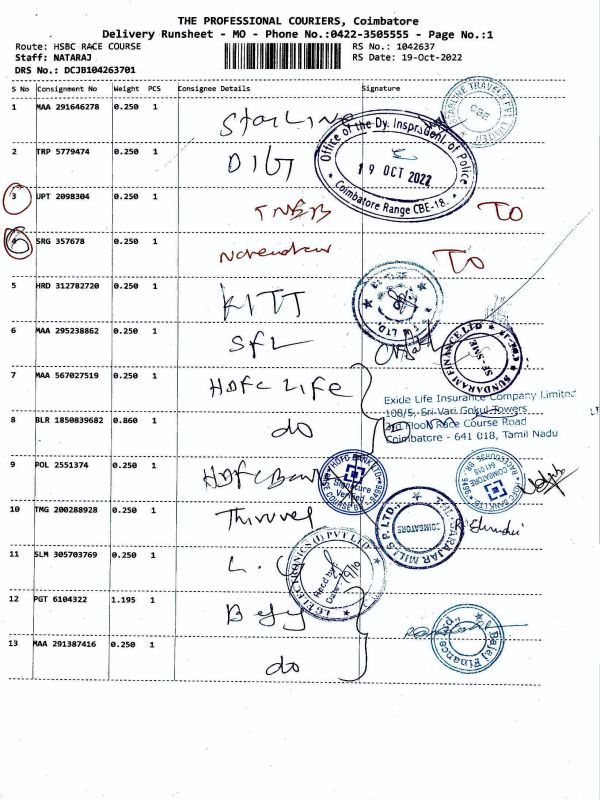 THE PROFESSIONAL COURIERS, Coimbatore
Delivery Runsheet - MO - Phone No.:0422-3505555 - Page No.:1
Route: HSBC RACE COURSE
RS No.: 1042637
Staff: NATARAJ
RS Date: 19-Oct-2022
DRS No.: DCJB104263701
S No Consignment No Weight PCS Consignee Details Signature
1 MAA 291646278 0.250 1
2 TRP 5779474 0.250 1 DIG
Office of the Dy. Inspr. Genl. of Police
19 OCT 2022
Coimbatore Range CBE-18.
3 UPT 2098304 0.250 1 TNEB TO
4 SRG 357678 0.250 1 TO
5 HRD 312782720 0.250 1 KITT
6 MAA 295238862 0.250 1 SFL
SUNDARAM FINANCE LTD
7 MAA 567027519 0.250 1 HDFC Life
Exide Life Insurance Company Limited
108/5, Sri Vari Gokul Towers
3rd Floor Race Course Road
Coimbatore - 641 018, Tamil Nadu
8 BLR 1850839682 0.860 1 do
9 POL 2551374 0.250 1 HDFC Bank
HDFC BANK LTD
Signature Verified
10 TMG 200288928 0.250 1
COIMBATORE
11 SLM 305703769 0.250 1
LG ELECTRONICS (I) PVT LTD
12 PGT 6104322 1.195 1
Bajaj Finance
13 MAA 291387416 0.250 1 do